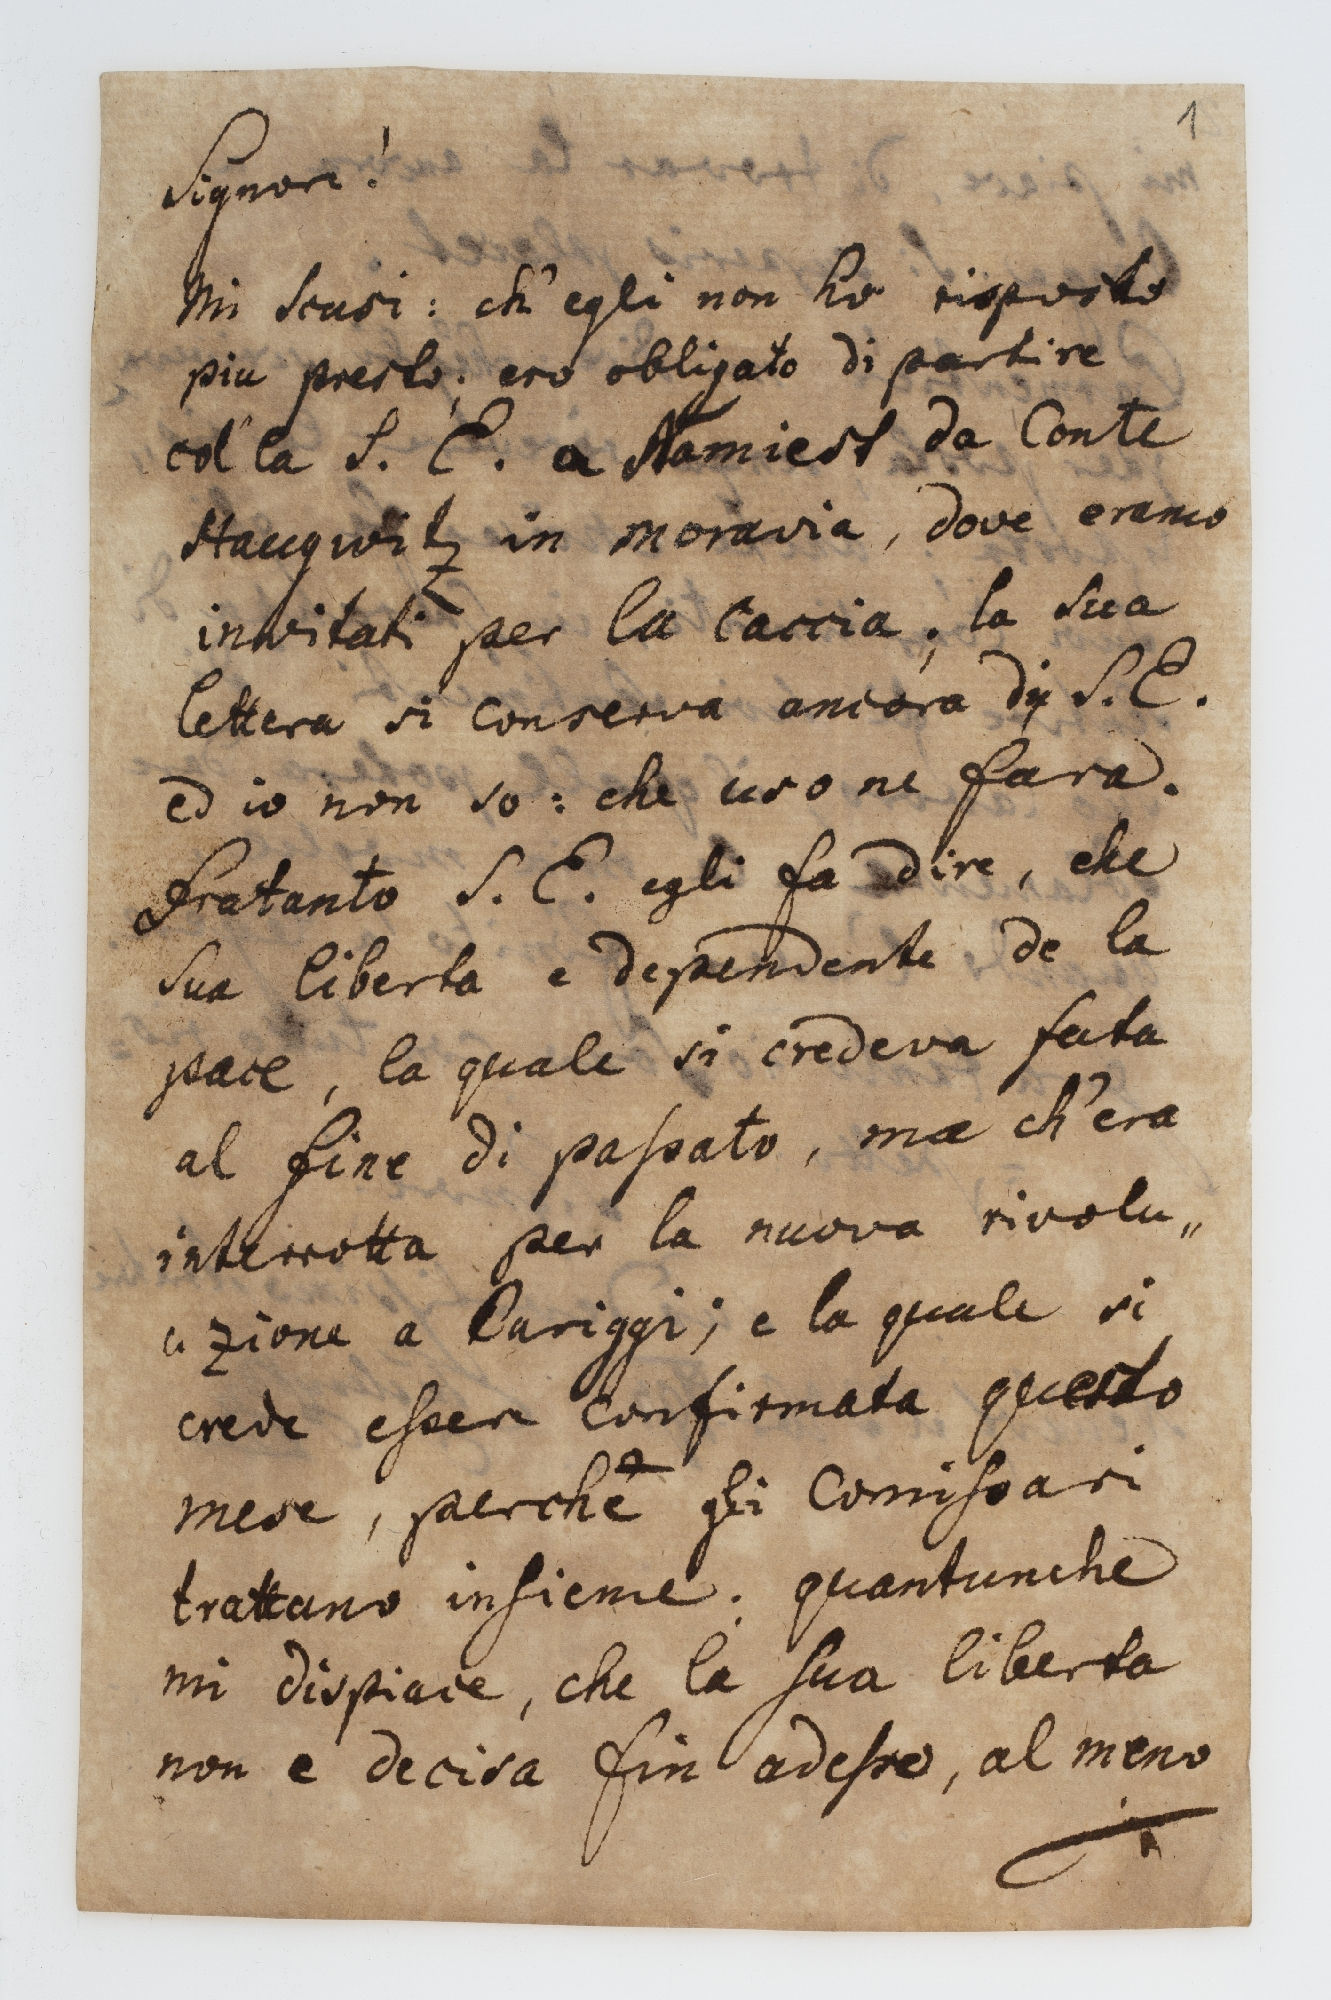 1
Signore!
Mi scusi: ch'egli non ho risposto
piu presto; ero obligato di partire
col'la S. E. a Namiest da Conte
Haugwitz in moravia, dove eramo
invitati per la caccia; la sua
lettera si conserva ancora di S. E.
ed io non so: che uso ne fara.
fratanto S. E. egli fa dire, che
sua liberta e dependente de la
pace, la quale si credeva fata
al fine di passato, ma ch'era
interrotta per la nuova rivolu„
uzione a Pariggi; e la quale si
crede essere confirmata questo
mese, perchè gli Comissari
trattano insieme. quantunche
mi dispiace, che la sua liberta
non e decisa fin adesso, al meno